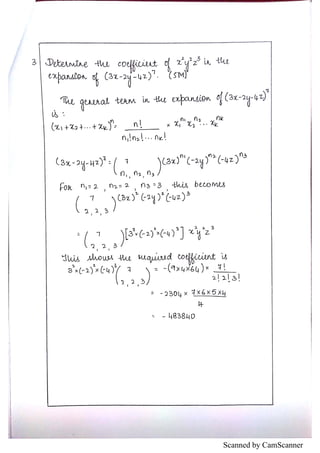 3 Determine the coefficient of x²y²z³ in the
expansion of (3x-2y-4z)⁷. (5M)
The general term in the expansion of (3x-2y-4z)⁷
is :
(x₁+x₂+...+xₖ)ⁿ = n! / n₁!n₂!... nₖ! × x₁ⁿ¹ x₂ⁿ² ... xₖⁿᵏ
(3x-2y-4z)⁷ = ( 7 / n₁, n₂, n₃ )(3x)ⁿ¹(-2y)ⁿ²(-4z)ⁿ³
For n₁=2 , n₂=2 , n₃=3 , this becomes
( 7 / 2, 2, 3 )(3x)²(-2y)²(-4z)³
= ( 7 / 2, 2, 3 )[3²×(-2)²×(-4)³] x²y²z³
This shows the required coefficient is
3²×(-2)²×(-4)³( 7 / 2, 2, 3 ) = -(9×4×64)× 7! / 2! 2! 3!
= -2304 × 7×6×5×4 / 4
= -483840
Scanned by CamScanner